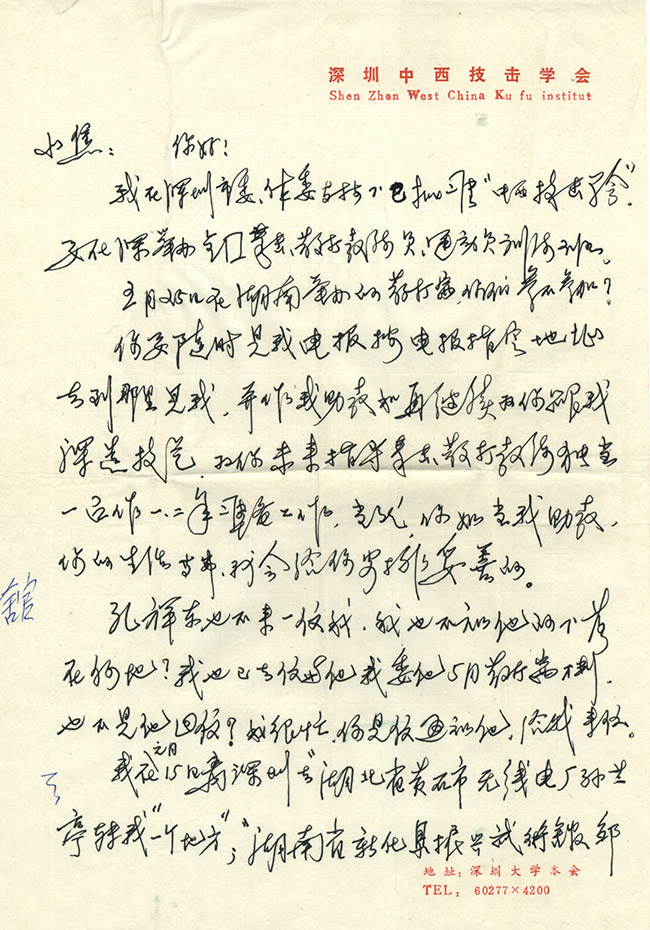 深圳中西技击学会
Shen Zhen West China Ku fu institut
小焦： 你好！
我在深圳市委、体委支持下已批准"中西技击学会"。
要在深举办全江拳击、散打教练员、运动员训练班。
五月25日在湖南举办的散打赛，你们参不参加？
你要随时见我电报按电报指定地址
去到那里见我，并作我助教和再继续把你跟我
深造技艺，把你未来指导拳击散打教练独当
一面作一、二年准备工作，当然，你如当我助教，
你的生活等等，我会给你安排妥善的。
孔祥东也不来一信我，我也不知他的下落
在何地？我也已去信给他我委他5月散打赛裁判，
也不见他回信？我很忙，你见信通知他，给我来信。
我在元月15日离深圳去"湖北省黄石市无线电厂孙兰
亭转我"一个地方"；"湖南省新化县振兴武术馆 邹
馆
地址：深圳大学本会
TEL: 60277×4200